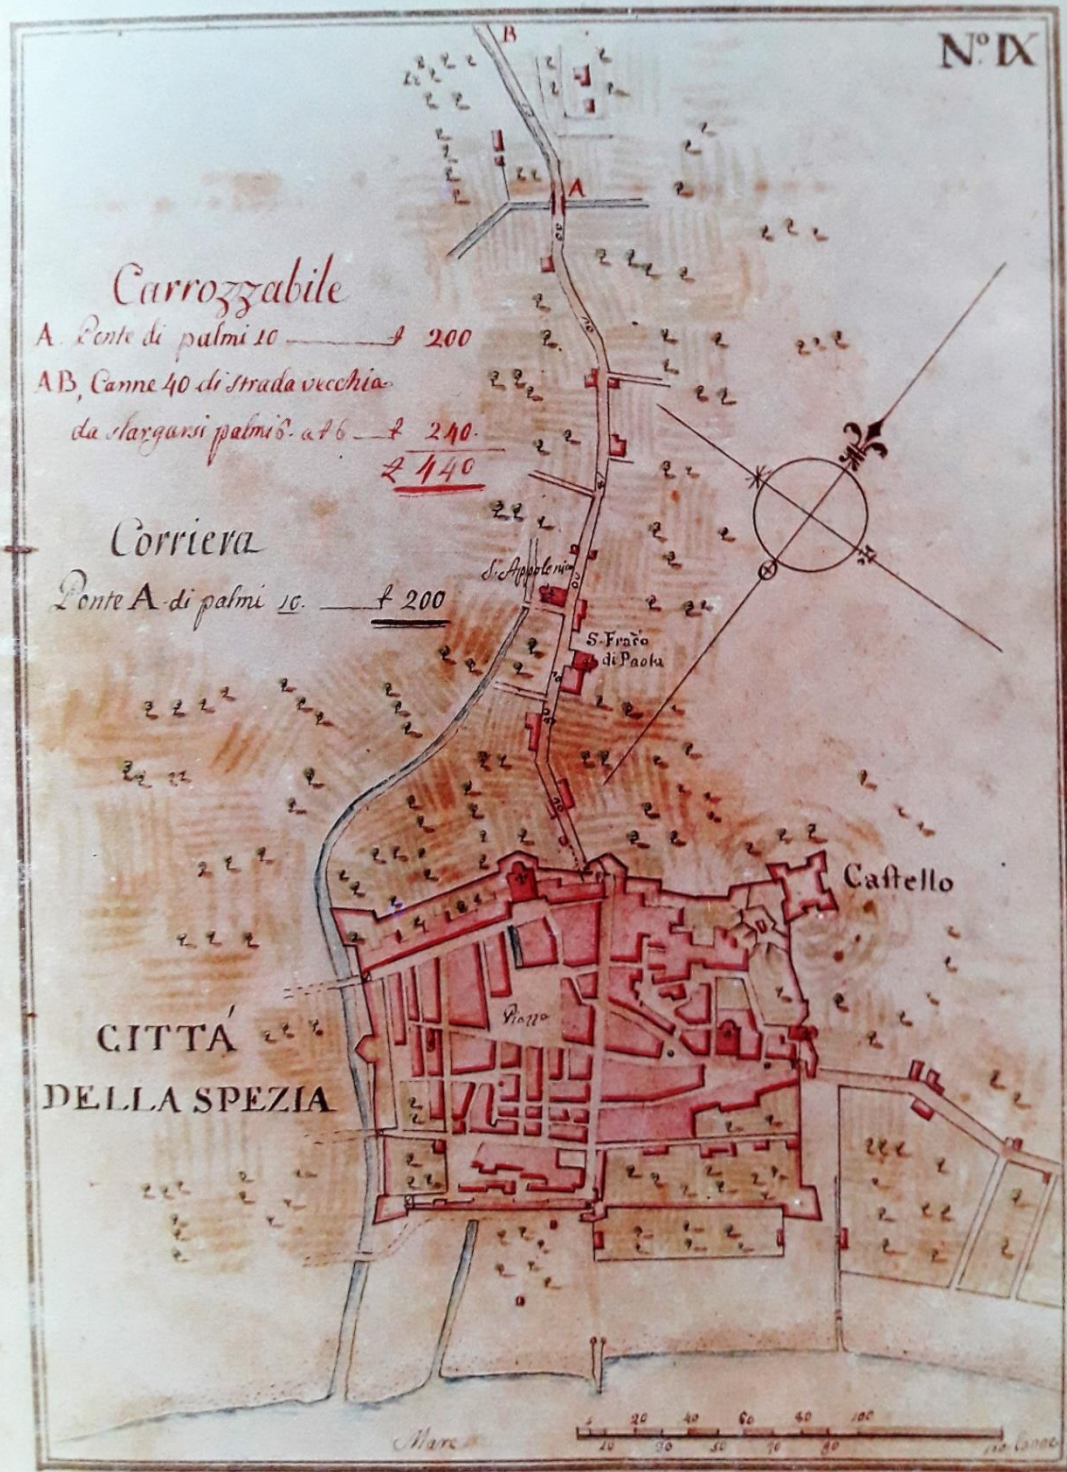 B
Nº. IX
A
Carrozzabile
A. Ponte di palmi 10 £ 200
AB, Canne 40 di strada vecchia
da slargarsi palmi 6. a £ 6 £ 240.
£ 440
Corriera
Ponte A di palmi 10. £ 200
S. Appolonia
S. Fran͠co
di Paola
Castello
Piazza
CITTÁ
DELLA SPEZIA
Mare
5 20 40 60 80 100
10 30 50 70 90 150 Canne